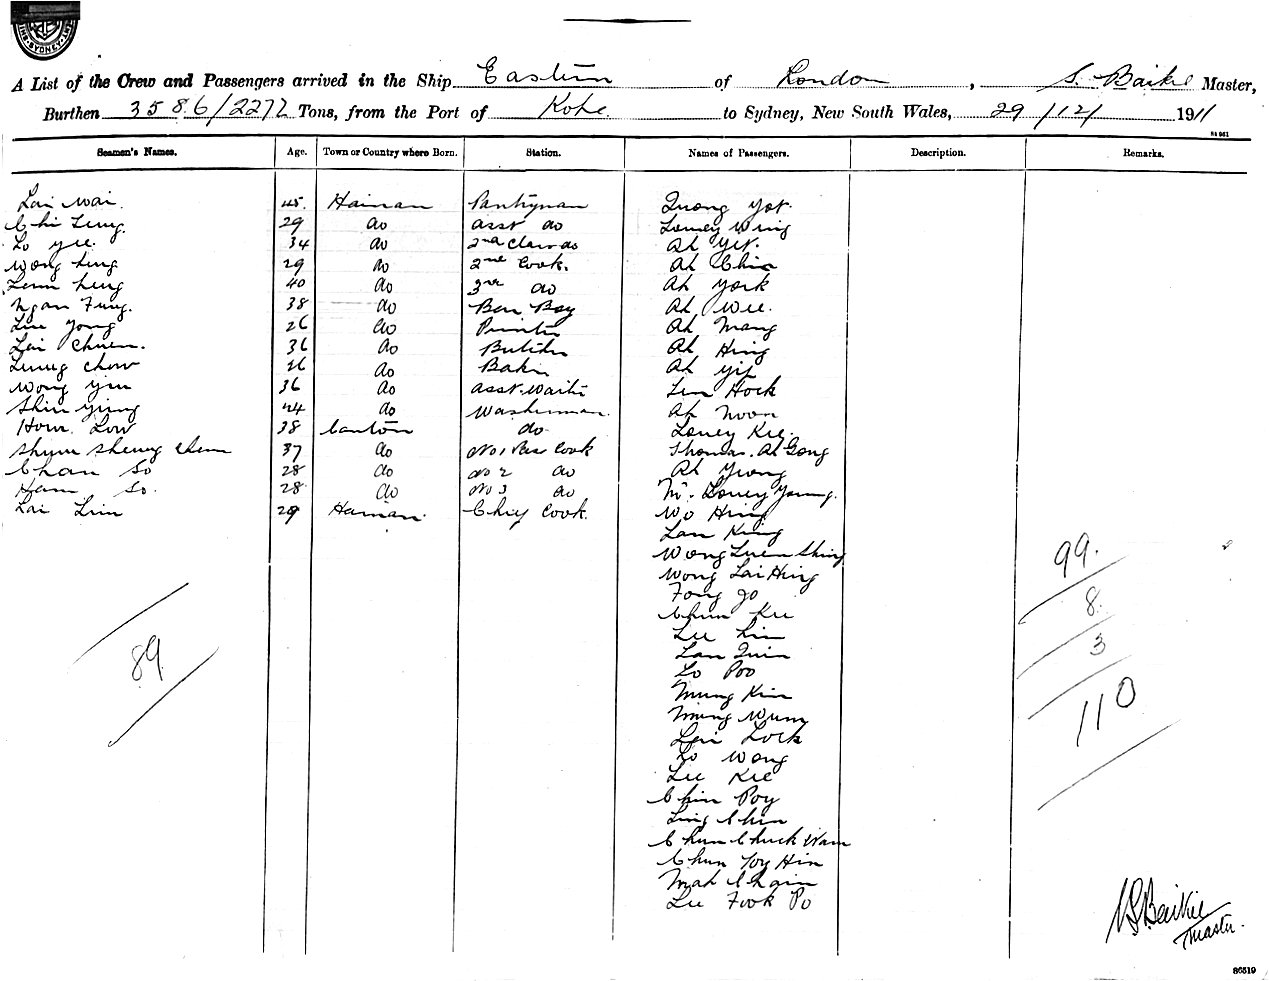 SYDNEY
A List of the Crew and Passengers arrived in the Ship Eastern of London, S. Baikie Master,
Burthen 3586/2272 Tons, from the Port of Kobe to Sydney, New South Wales, 29/12/1911
Seamen's Names. Age. Town or Country where Born. Station. Names of Passengers. Description. Remarks.
Lai Wai. 45. Hainan Pantryman Quong Yot.
Chi Leng. 29 do asst do Louey Wing
Lo Yee. 34 do 2nd Class do Ah Yet.
Wong Ling 29 do 2nd Cook. Ah Chin
Lem Leng 40 do 3rd do Ah York
Ngan Fung. 38 do Bar Boy Ah Wee.
Lin Yong 26 do Printer Ah Mang
Lai Chuen. 36 do Butcher Ah Hing
Leung Chow 26 do Baker Ah Yip
Wong Yin 36 do asst. Waiter Lin Hock
Shin Ying 24 do Washerman. Ah Noon
How Low 38 Canton do Louey Kee.
Shum Sheung 37 do No 1 Cook Thomas. Ah Gong
Chan So 28 do No 2 do Ah Yiong
Ham So. 28 do No 3 do M. Louey Young.
Lai Lim 29 Hainan. Chief Cook. Wo Hing
Lan King
Wong Luen Shing
Wong Lai Hing
Fong Jo
Chun Kee
Lee Lin
Lan Quin
Lo Poo
Mung Kin
Ming Wum
Lai Lock
Lo Wong
Lee Kee
Chin Poy
Ling Chin
Chun Chuck Wam
Chun Toy Hin
Mah Chain
Lee Fook Po
99.
8.
3
110
89
S Baikie
Master.
86519